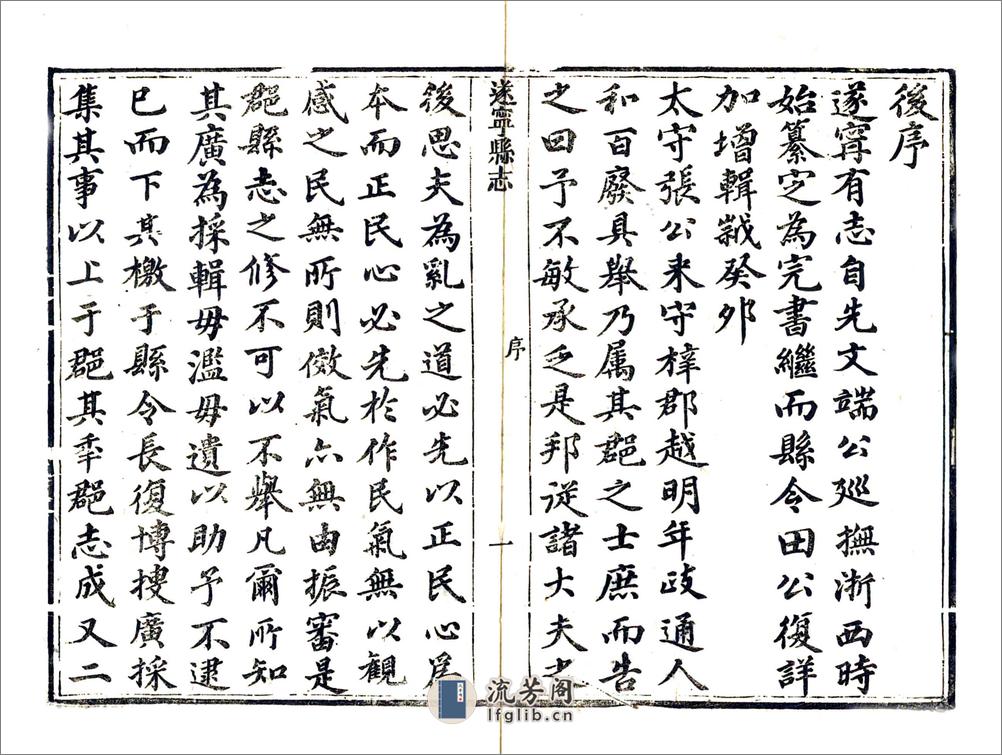 後序
遂寧有志自先文端公廵撫浙西時
始纂定為完書繼而縣令田公復詳
加增輯歲癸卯
太守張公来守梓郡越明年政通人
和百廢具舉乃属其郡之士庶而告
之曰予不敏承乏是邦従諸大夫之
遂寧縣志
序
一
後思夫為亂之道必先以正民心為
本而正民心必先於作民氣無以觀
感之民無所則傚氣亦無由振審是
郡縣志之修不可以不舉凡爾所知
其廣為採輯毋濫毋遺以助予不逮
已而下其檄于縣令長復博搜廣採
集其事以上于郡其季郡志成又二
流芳阁
lfglib.cn